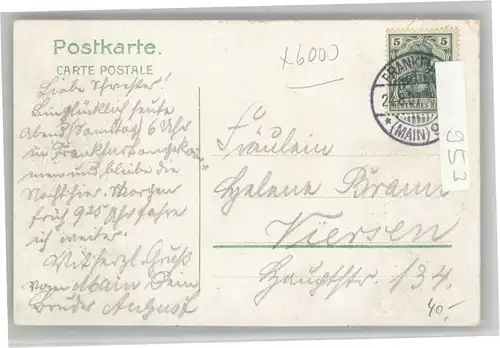 Postkarte.
CARTE POSTALE
x6000
5
5
FRANKFU
(MAIN)
953
Liebe Schwester!
Bin glücklich heute
Abend (Samstag 6 Uhr
in Frankfurt angekom
men und bleibe die
Nacht hier. Morgen
früh 9 25 Uhr fahre
ich weiter.
Mit herzl. Gruß
vom Main Dein
Bruder August
Fräulein
Helene Bramm
Viersen
Hauptstr. 134.
40.-